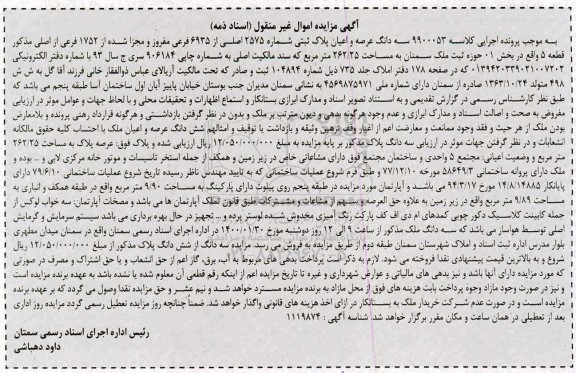 آگهی مزایده اموال غیر منقول (اسناد ذمه)
به موجب پرونده اجرایی کلاسه ۹۹۰۰۰۵۳ سه دانگ عرصه و اعیان پلاک ثبتی شماره ۲۵۷۵ اصلی از ۶۹۳۵ فرعی مفروز و مجزا شده از ۱۷۵۲ فرعی از اصلی مذکور
قطعه ۵ واقع در بخش ۰۱ حوزه ثبت ملک سمنان به مساحت ۲۶۲/۲۵ متر مربع که سند مالکیت اصلی به شماره چاپی ۹۰۶۱۸۴ سری ج سال ۹۳ با شماره دفتر الکترونیکی
۱۳۹۴۲۰۳۳۹۰۲۱۰۰۷۲۰۲ که در صفحه ۱۷۸ دفتر املاک جلد ۷۳۵ ذیل شماره ۱۰۴۸۹۴ ثبت و صادر که تحت مالکیت آریالای عباس ذوالفقار خانی فرزند آقا گل به ش ش
۴۹۸ متولد ۱۳۶۳/۱۰/۲۴ صادره از سمنان دارای شماره ملی ۴۵۶۹۸۷۵۹۷۱ به نشانی سمنان مدیران جنب بوستان خیابان پاییز آبان اول ساختمان آسا طبقه پنجم می باشد که
طبق نظر کارشناس رسمی در گزارش تقدیمی و به استناد تصویر اسناد و مدارک ابرازی بستانکار و استماع اظهارات و تحقیقات محلی و با لحاظ جهات و عوامل موثر در ارزیابی
مفروض به صحت و اصالت اسناد و مدارک ابرازی و عدم وجود هرگونه بدهی و دیون مترتب بر ملک و بدون در نظر گرفتن بازداشتی و هرگونه قرارداد رهنی پرونده و بلامعارض
بودن ملک از هر حیث و فقد وجود ممانعت و معارضت اعم از اغیار و قانون زمین وثیقه و بازداشت یا توقیف و امثالهم شش دانگ عرصه و اعیان ملک با احتساب کلیه حقوق مالکانه
انشعابات و در نظر گرفتن جهات موثر در ارزیابی سه دانگ پلاک مذکور بر پایه مزایده به مبلغ ۱۲/۰۵۰/۰۰۰/۰۰۰ ریال ارزیابی شده و پلاک فوق: عرصه پلاک به مساحت ۲۶۲/۲۵
متر مربع و وضعیت اعیانی: مجتمع ۵ واحدی و ساختمان مجتمع فوق دارای مشاعاتی خاص در زیر زمین و همکف از جمله استخر تاسیسات و موتور خانه مرکزی لابی و ... بوده و
ملک دارای پروانه ساختمانی ۵۸۶۴۹/۳ مورخه ۷۷/۱۲/۱۰ و طبق فرم شروع عملیات ساختمانی که به تایید مهندس ناظر رسیده تاریخ شروع عملیات ساختمانی ۷۹/۶/۱۰ دارای
پایانکار ۱۴/۸/۱۴۸۸۵ مورخ ۹۴/۳/۱۷ می باشد و آپارتمان مورد مزایده در طبقه پنجم روی پیلوت دارای پارکینگ به مساحت ۹/۹۰ متر مربع واقع در طبقه همکف و انباری به
مساحت ۹/۸۹ متر مربع واقع در زیر زمین به علاوه حق العرصه و سهم از مشاعات و مشترکات طبق قانون تملک آپارتمان ها می باشد و مضحات آپارتمان: سه خواب لوکس از
جمله کابینت کلاسیک دکور چوبی کمدهای ام دی اف کف پارکت رنگ آمیزی مخدوش شده لوستر پرده و ... تجهیز در حال بهره برداری می باشد سیستم سرمایش و گرمایش
اصلی توسط هواساز می باشد که سه دانگ ملک مذکور از ساعت ۹ الی ۱۲ روز دوشنبه مورخ ۱۴۰۰/۰۱/۳۰ در اداره اجرای اسناد رسمی سمنان واقع در سمنان میدان مطهری
بلوار مدرس اداره ثبت اسناد و املاک شهرستان سمنان طبقه دوم از طریق مزایده به فروش می رسد. مزایده سه دانگ از شش دانگ پلاک مذکور از مبلغ ۱۲/۰۵۰/۰۰۰/۰۰۰ ریال
شروع و به بالاترین قیمت پیشنهادی نقدا فروخته می شود. لازم به ذکر است پرداخت بدهی های مربوط به آب، برق، گاز اعم از حق انشعاب و یا حق اشتراک و مصرف در صورتی
که مورد مزایده دارای آنها باشد و نیز بدهی های مالیاتی و عوارض شهرداری و غیره تا تاریخ مزایده اعم از اینکه رقم قطعی آن معلوم شده یا نشده باشد به عهده برنده مزایده است
و نیز در صورت وجود مازاد وجوه پرداختی بابت هزینه های فوق از محل مازاد به برنده مزایده مسترد خواهد شد و نیم عشر و حق مزایده نقدا وصول می گردد که بر عهده برنده
مزایده است و در صورت عدم شرکت خریدار ملک به بستانکار در ازای اخذ هزینه های قانونی واگذار خواهد شد. ضمنا چنانچه روز مزایده تعطیل رسمی گردد مزایده روز اداری
بعد از تعطیلی در همان ساعت و مکان مقرر برگزار خواهد شد. شناسه آگهی : ۱۱۱۹۸۷۴
رئیس اداره اجرای اسناد رسمی سمنان
داود دهباشی